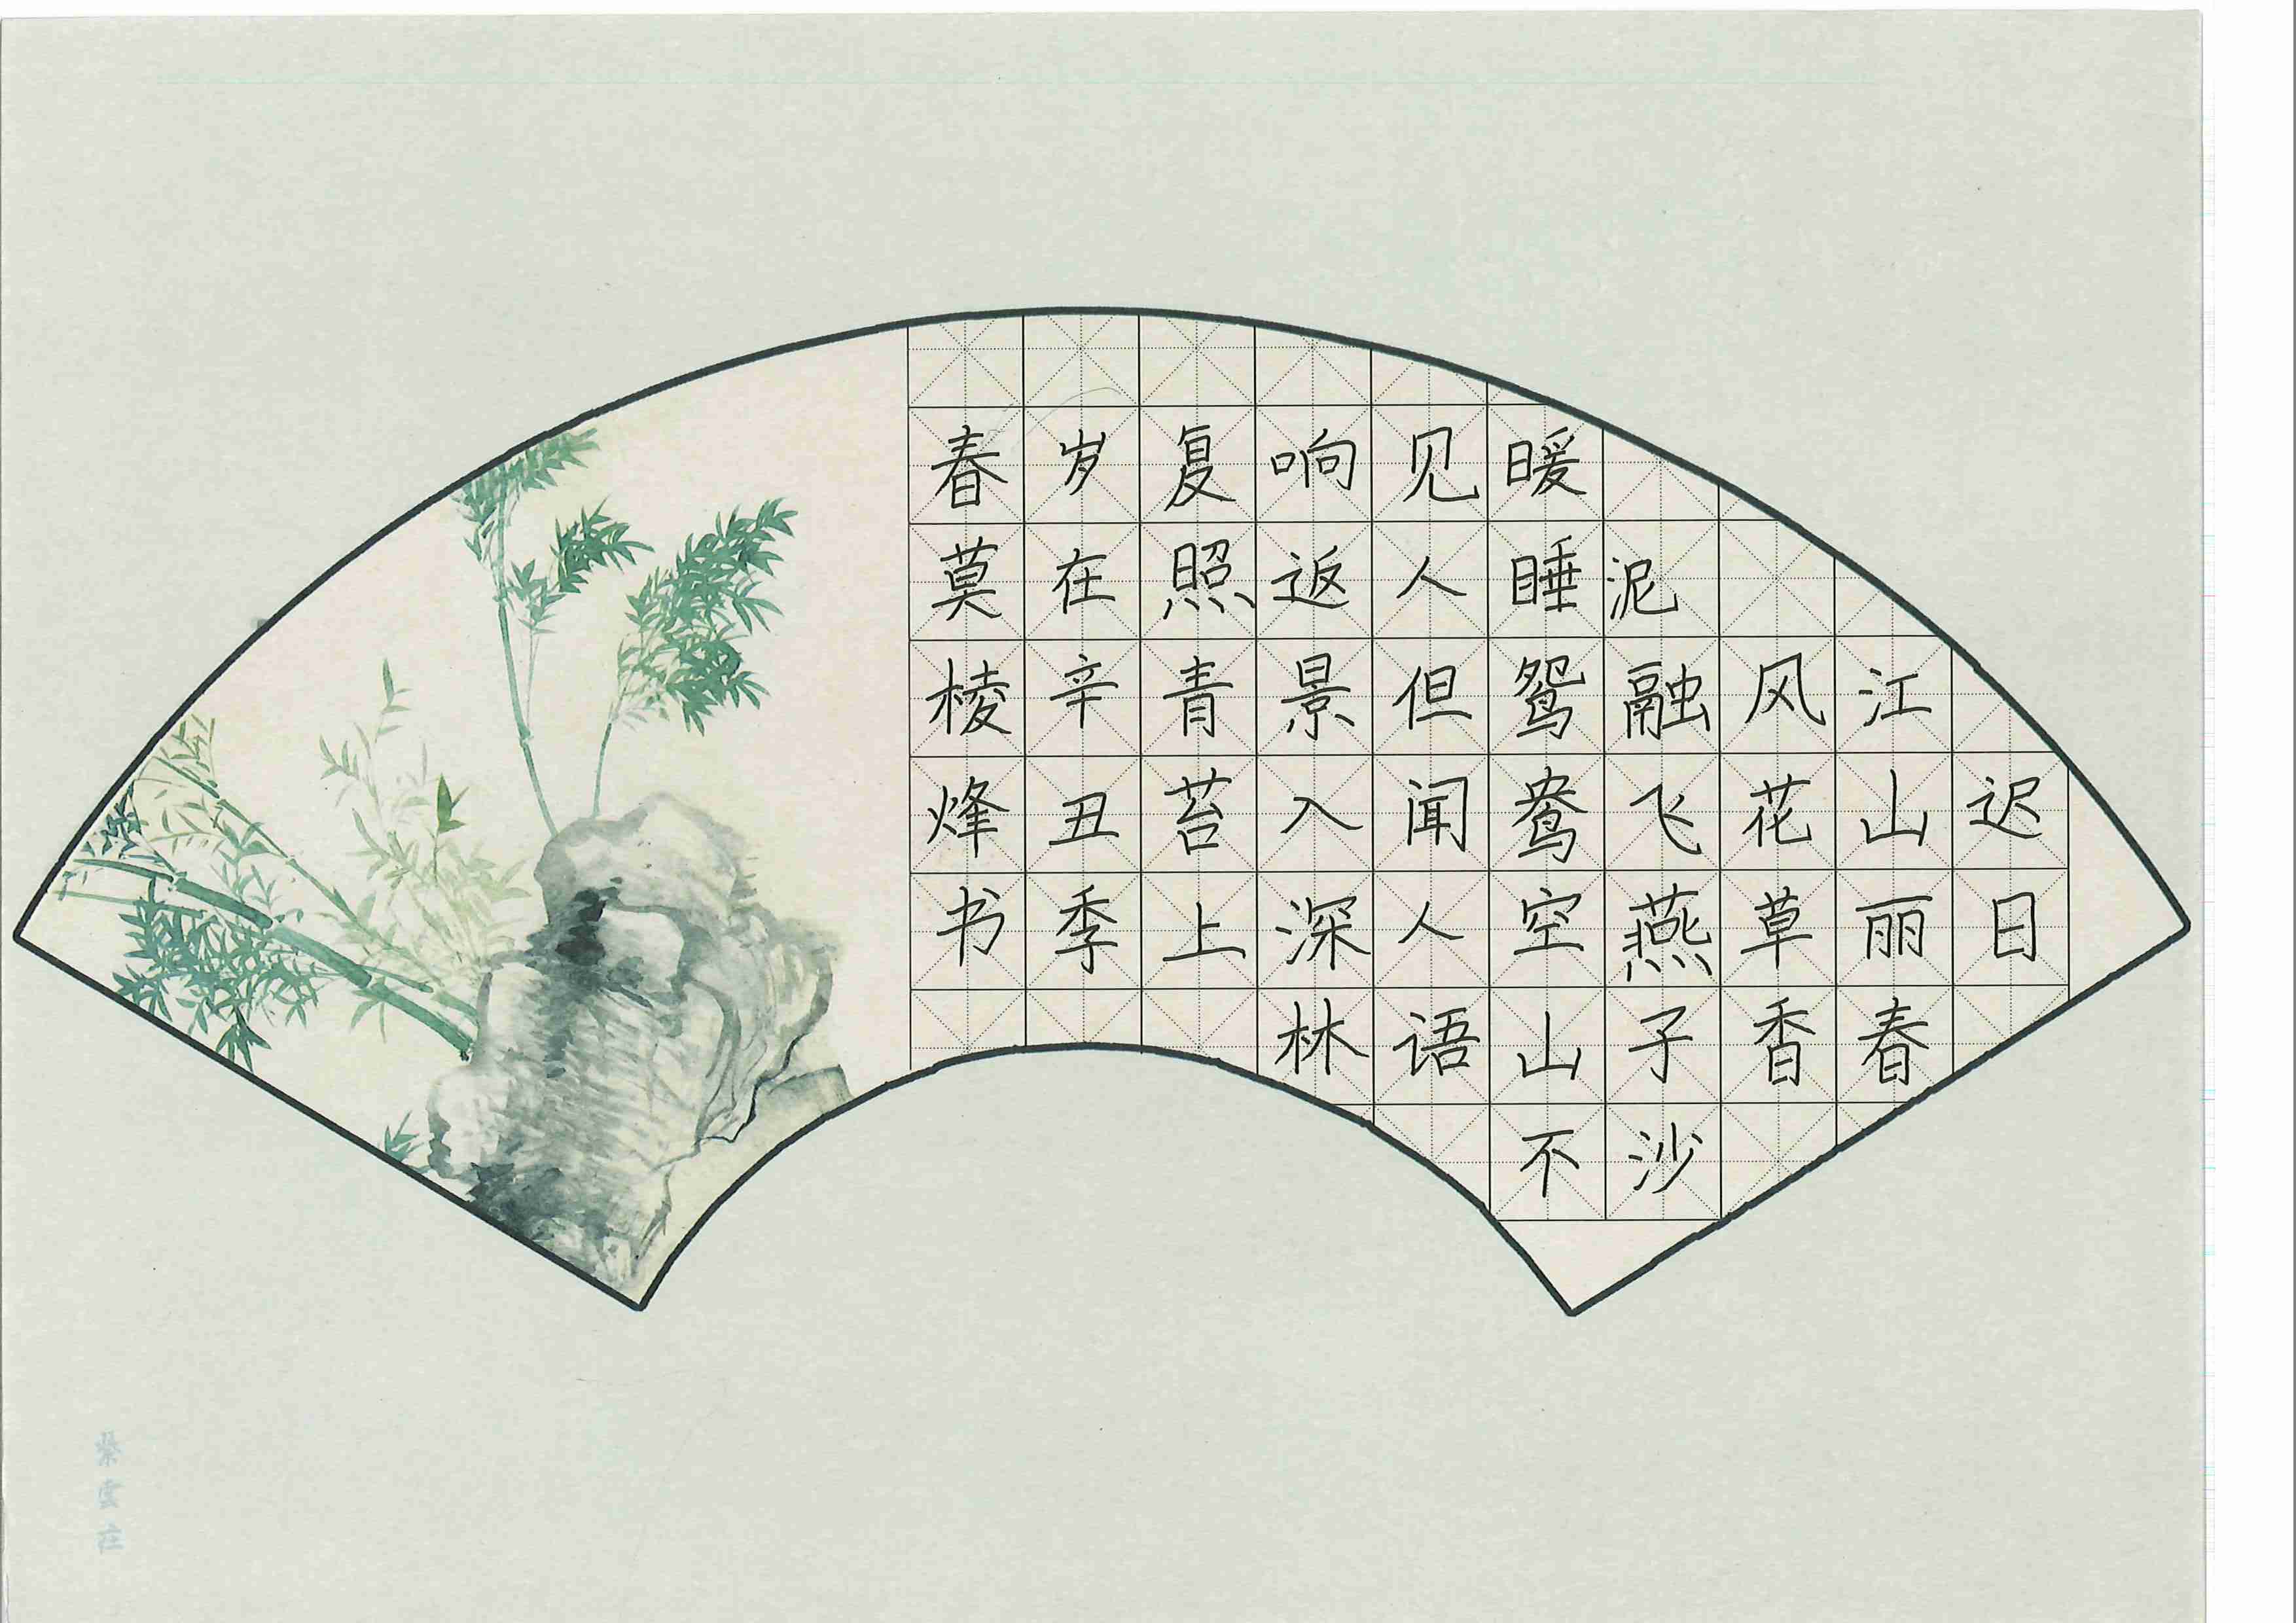 迟日
江山丽春
风花草香
泥融飞燕子沙
暖睡鸳鸯空山不
见人但闻人语
响返景入深林
复照青苔上
岁在辛丑季
春莫棱烽书